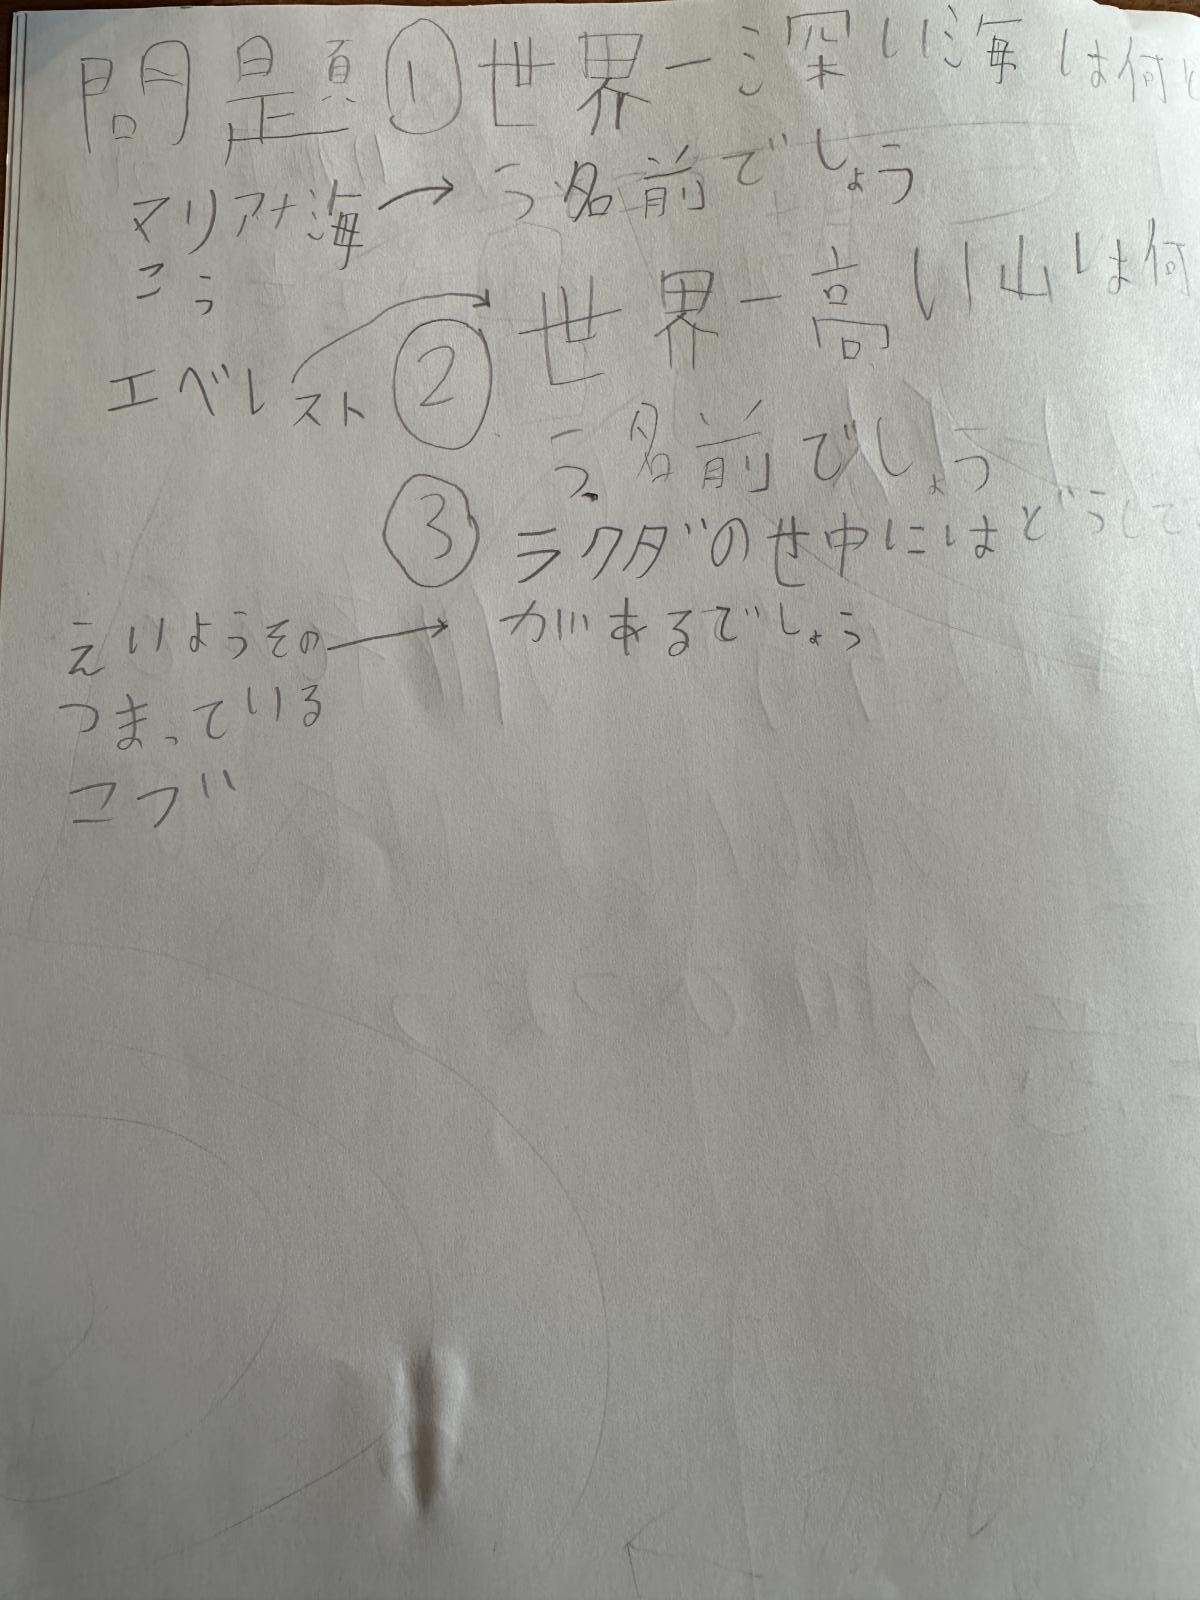 問題①世界一深い海は何と
マリアナ海→う名前でしょう
こう
②世界一高い山は何
エベレスト
う名前でしょう
③ラクダのせ中にはどうして
えいようその→があるでしょう
つまっている
こぶ